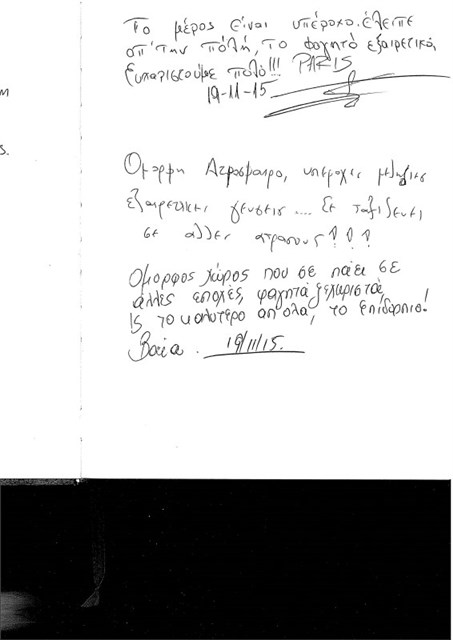 Το μέρος είναι υπέροχο. έλειπε
απ' την πόλη, το φαγητό εξαιρετικό,
Ευχαριστούμε πολύ!!! PARIS
19-11-15
Ομορφη Ατμοσφαιρα, υπεροχες μελωδιες
εξαιρετικες γευσεις .... Σε ταξιδευει
σε αλλες
Όμορφος χώρος που σε πάει σε
άλλες εποχές, φαγητά ξεχωριστά,
το καλύτερο απ' όλα, το επιδόρπιο!
Βαΐα. 19/11/15.
m
s.